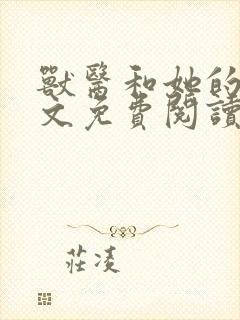 獸醫和她的
文免費閱讀
莊凌